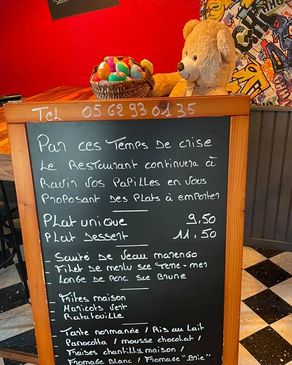 Tel 05 62 93 01 35
Par ces Temps de crise
Le Restaurant continuera à
Ravir vos papilles en vous
Proposant des Plats à emporter
Plat unique 9,50
Plat Dessert 11,50
Sauté de Veau marengo
Filet de merlu sce Terre-mer
Longe de Porc sce Brune
Frites maison
Haricots vert
Ratatouille
Tarte normande / Ris au Lait
Panacotta / mousse chocolat /
Fraises chantilly maison /
Fromage Blanc / Fromage "Brie"